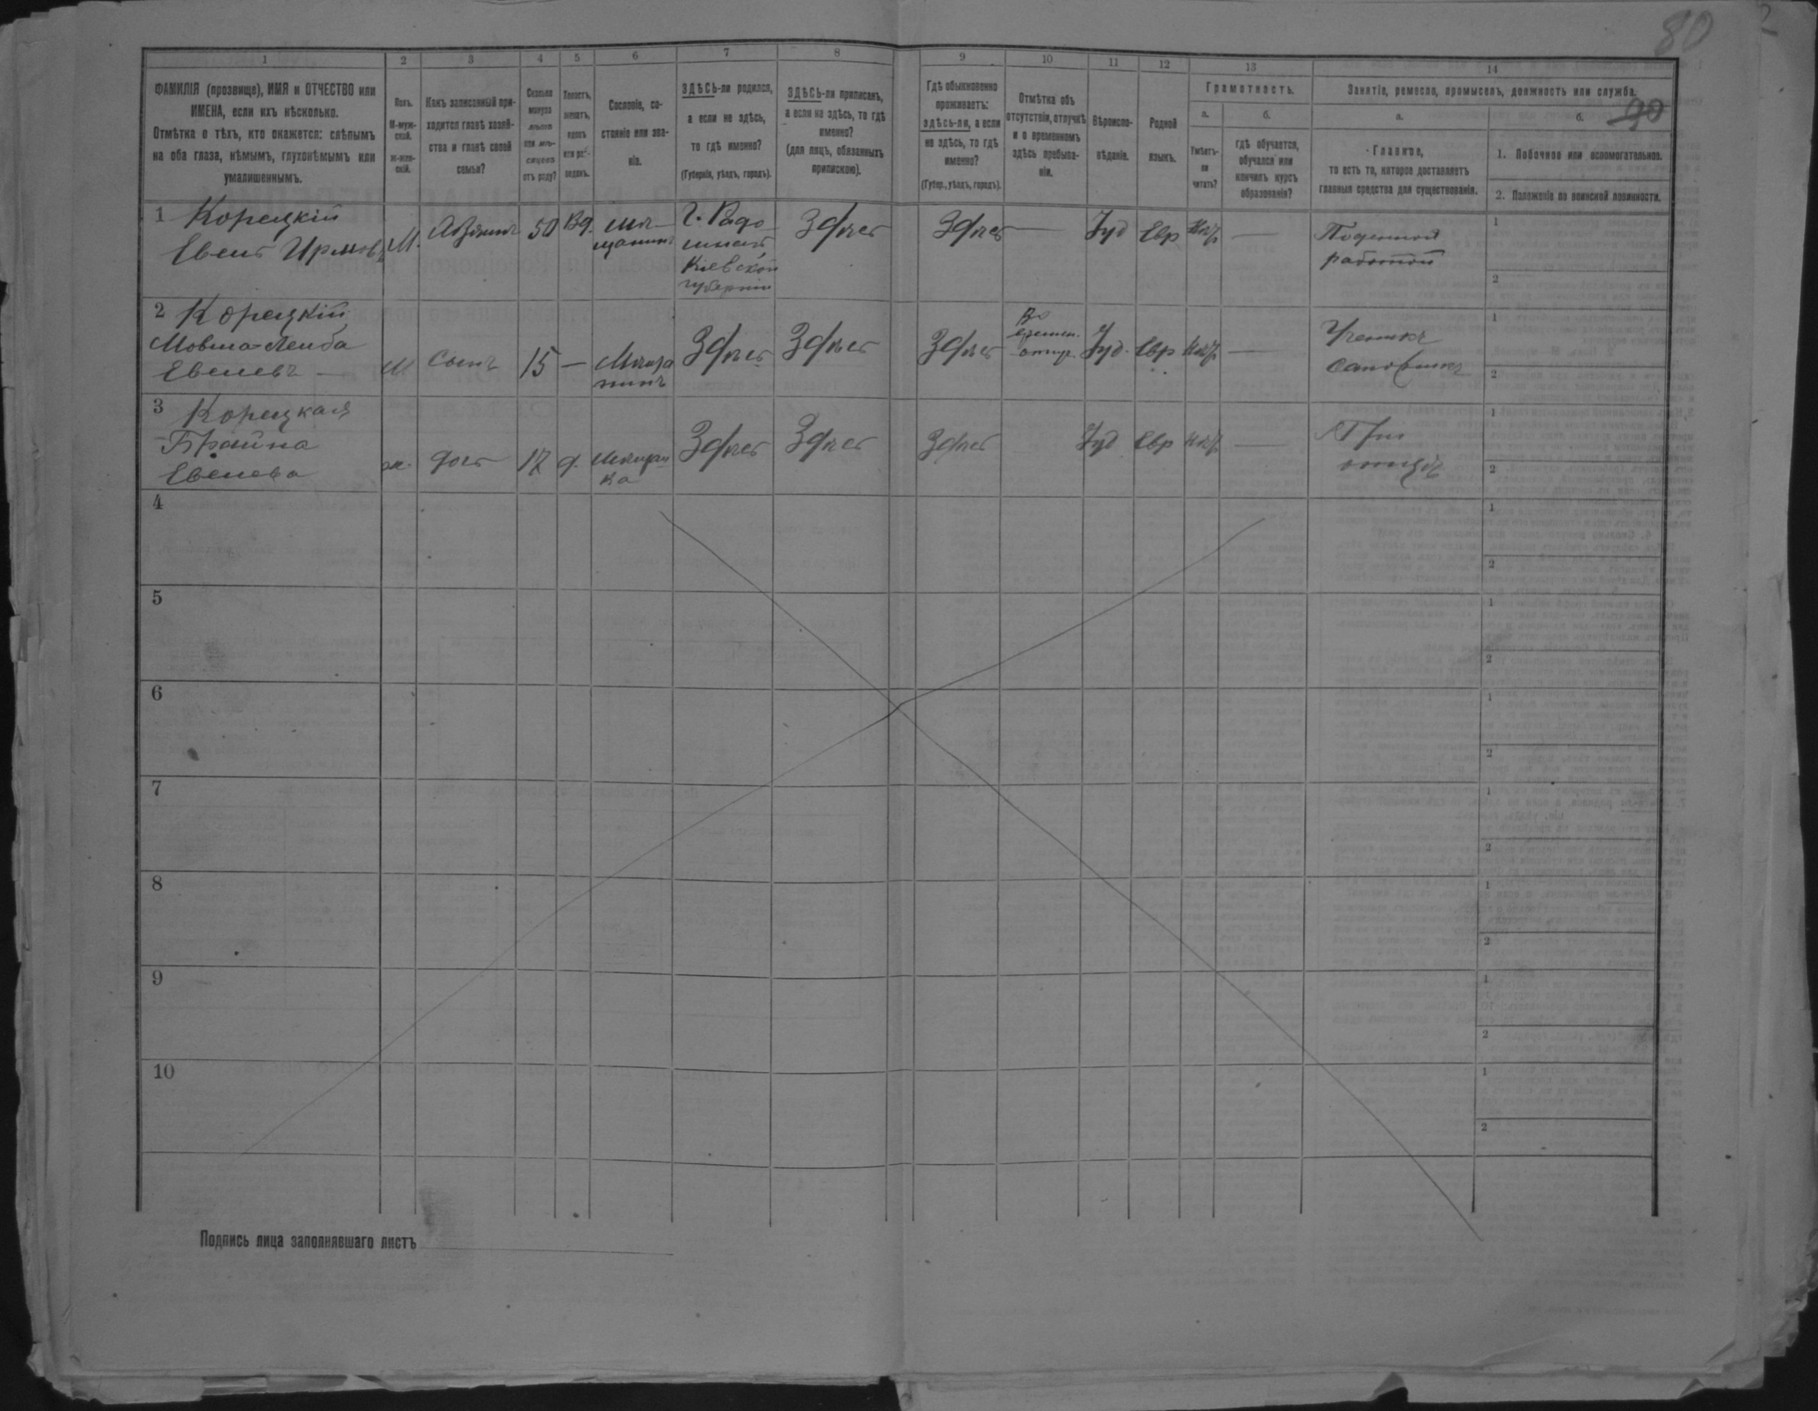 80
90
1
2
3
4
5
6
7
8
9
10
11
12
13
14
ФАМИЛІЯ (прозвище), ИМЯ и ОТЧЕСТВО или
ИМЕНА, если ихъ нѣсколько.
Отмѣтка о тѣхъ, кто окажется: слѣпымъ
на оба глаза, нѣмымъ, глухонѣмымъ или
умалишеннымъ.
Полъ.
М-муж-
ской.
ж-жен-
скій.
Какъ записанный при-
ходится главѣ хозяй-
ства и главѣ своей
семьи?
Сколько
минуло
лѣтъ
или мѣ-
сяцевъ
отъ роду?
Холостъ,
женатъ,
вдовъ
или раз-
веденъ.
Сословіе, со-
стояніе или зва-
ніе.
ЗДѢСЬ-ли родился,
а если не здѣсь,
то гдѣ именно?
(Губернія, уѣздъ, городъ).
ЗДѢСЬ-ли приписанъ,
а если не здѣсь, то гдѣ
именно?
(для лицъ, обязанныхъ
припискою).
Гдѣ обыкновенно
проживаетъ:
здѣсь-ли, а если
не здѣсь, то гдѣ
именно?
(Губер., уѣздъ, городъ).
Отмѣтка объ
отсутствіи, отлучкѣ
и о временномъ
здѣсь пребыва-
ніи.
Вѣроиспо-
вѣданіе.
Родной
языкъ.
Грамотность.
а.
Умѣетъ-
ли
читать?
б.
гдѣ обучается,
обучался или
кончилъ курсъ
образованія?
Занятіе, ремесло, промыселъ, должность или служба.
а.
Главное,
то есть то, которое доставляетъ
главныя средства для существованія.
б.
1. Побочное или вспомогательное.
2. Положеніе по воинской повинности.
1 Корецкій
Евель М. 50 Вд. мѣ-
щанинъ
Кіевской
губерніи
Здѣсь Здѣсь — Іуд Евр —
Поденной
работой
1
2
2 Корецкій
Мовша-Лейба
Евелевъ — М сынъ 15 — Мѣща
нинъ
Здѣсь Здѣсь Здѣсь
Во
времен.
отлуч.
Іуд. Евр —
Ученикъ
1
2
3 Корецкая
Брайна
Евелева ж. дочь 17 д. Мѣщан
ка
Здѣсь Здѣсь Здѣсь Іуд Евр —
При
отцѣ
1
2
4
1
2
5
1
2
6
1
2
7
1
2
8
1
2
9
1
2
10
1
2
Подпись лица заполнявшаго листъ